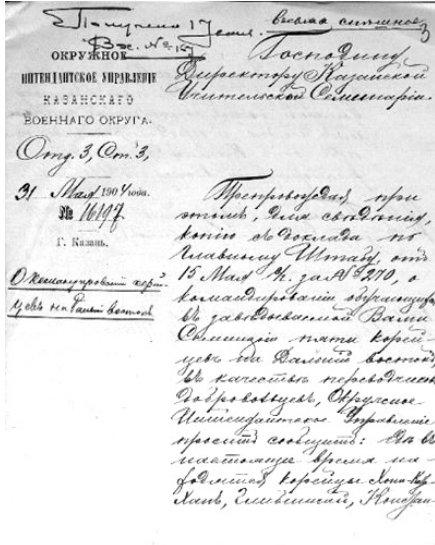 Получено 17 Іюня.
Вх. № 15
весьма спѣшное
3
ОКРУЖНОЕ
ИНТЕНДАНТСКОЕ УПРАВЛЕНІЕ
КАЗАНСКАГО
ВОЕННАГО ОКРУГА.
Отд. 3, Ст. 3,
31 Мая 1904 года.
№ 16197
Г. Казань.
О командировании корей-
цевъ на Дальній востокъ
Господину
Директору Казанской
Учительской Семинаріи.
Препровождая при
этомъ, для свѣдѣнія,
копію съ доклада по
Главному Штабу, отъ
15 Мая с/г. за № 270, о
командированіи обучающихся
въ завѣдываемой Вами
Семинаріи пяти корей-
цевъ на Дальній востокъ,
въ качествѣ переводчиковъ
добровольцевъ, Окружное
Интендантское Управленіе
проситъ сообщить: гдѣ въ
настоящее время на-
ходятся корейцы Хонъ-Кор-
Ханъ,